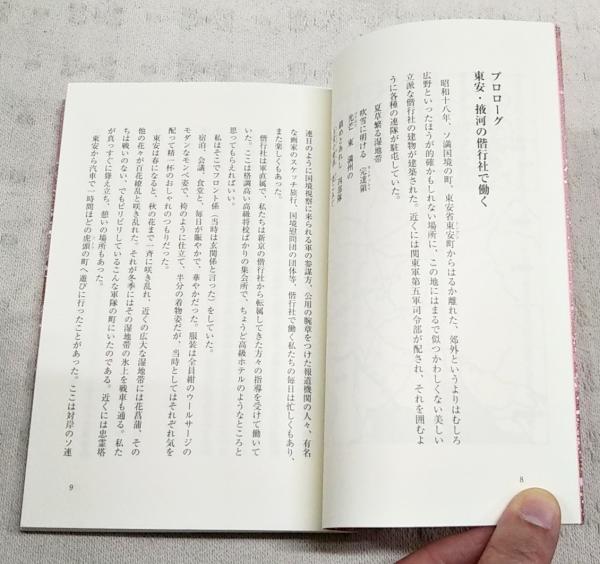 プロローグ
東安・掖河の偕行社で働く
昭和十八年、ソ満国境の町、東安省東安町からはるか離れた、郊外というよりはむしろ
広野といったほうが的確かもしれない場所に、この地にはまるで似つかわしくない美しい
立派な偕行社の建物が建築された。近くには関東軍第五軍司令部が配され、それを囲むよ
うに各種の連隊が駐屯していた。
夏草繁る湿地帯
吹雪に明ける完達嶺
光だ 東 満州の
8
連日のように国境視察に来られる軍の参謀方、公用の腕章をつけた報道機関の人々、有名
な画家のスケッチ旅行、国境慰問団の団体等、偕行社で働く私たちの毎日は忙しくもあり、
また楽しくもあった。
偕行社は軍直属で、私たちは新京の偕行社から転属してきた方々の指導を受けて働いて
いた。ここは格調高い高級将校ばかりの集会所で、ちょうど高級ホテルのようなところと
思ってもらえればいい。
私はそこでフロント係（当時は玄関係と言った）をしていた。
宿泊、会議、食堂と、毎日が賑やかで、華やかだった。服装は全員紺のウールサージの
モダンなモンペ姿で、袴のように仕立て、半分の着物姿だが、当時としてはそれぞれ気を
配って精一杯のおしゃれのつもりだった。
東安は春になると、秋の花まで一斉に咲き乱れ、近くの広大な湿地帯には花菖蒲、その
他の花々が百花繚乱と咲き乱れた。それが冬季にはその湿地帯の氷上を戦車も通る。私た
ちは戦いのない、でもピリピリしているこんな軍隊の町にいたのである。近くには忠霊塔
が真っすぐに聳え立ち、憩いの場所もあった。
東安から汽車で一時間ほどの虎頭の町へ遊びに行ったことがあった。ここは対岸のソ連
9